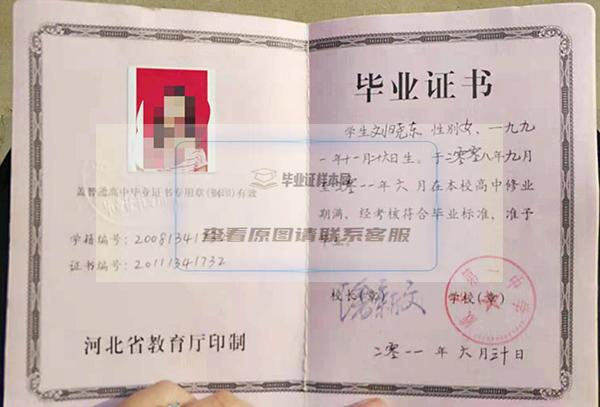 盖普通高中毕业证书专用章(钢印)有效
学籍编号: 20081341732
证书编号: 20111341732
河北省教育厅印制
毕业证书
学生刘晓东,性别女,一九九
一年十一月十六日生。于二零零八年九月
至二零一一年六月在本校高中修业
期满,经考核符合毕业标准,准予
毕业证样本网
查看原图请联系客服
校长(章)
学校(章)
第一中学
二零一一年六月三十日